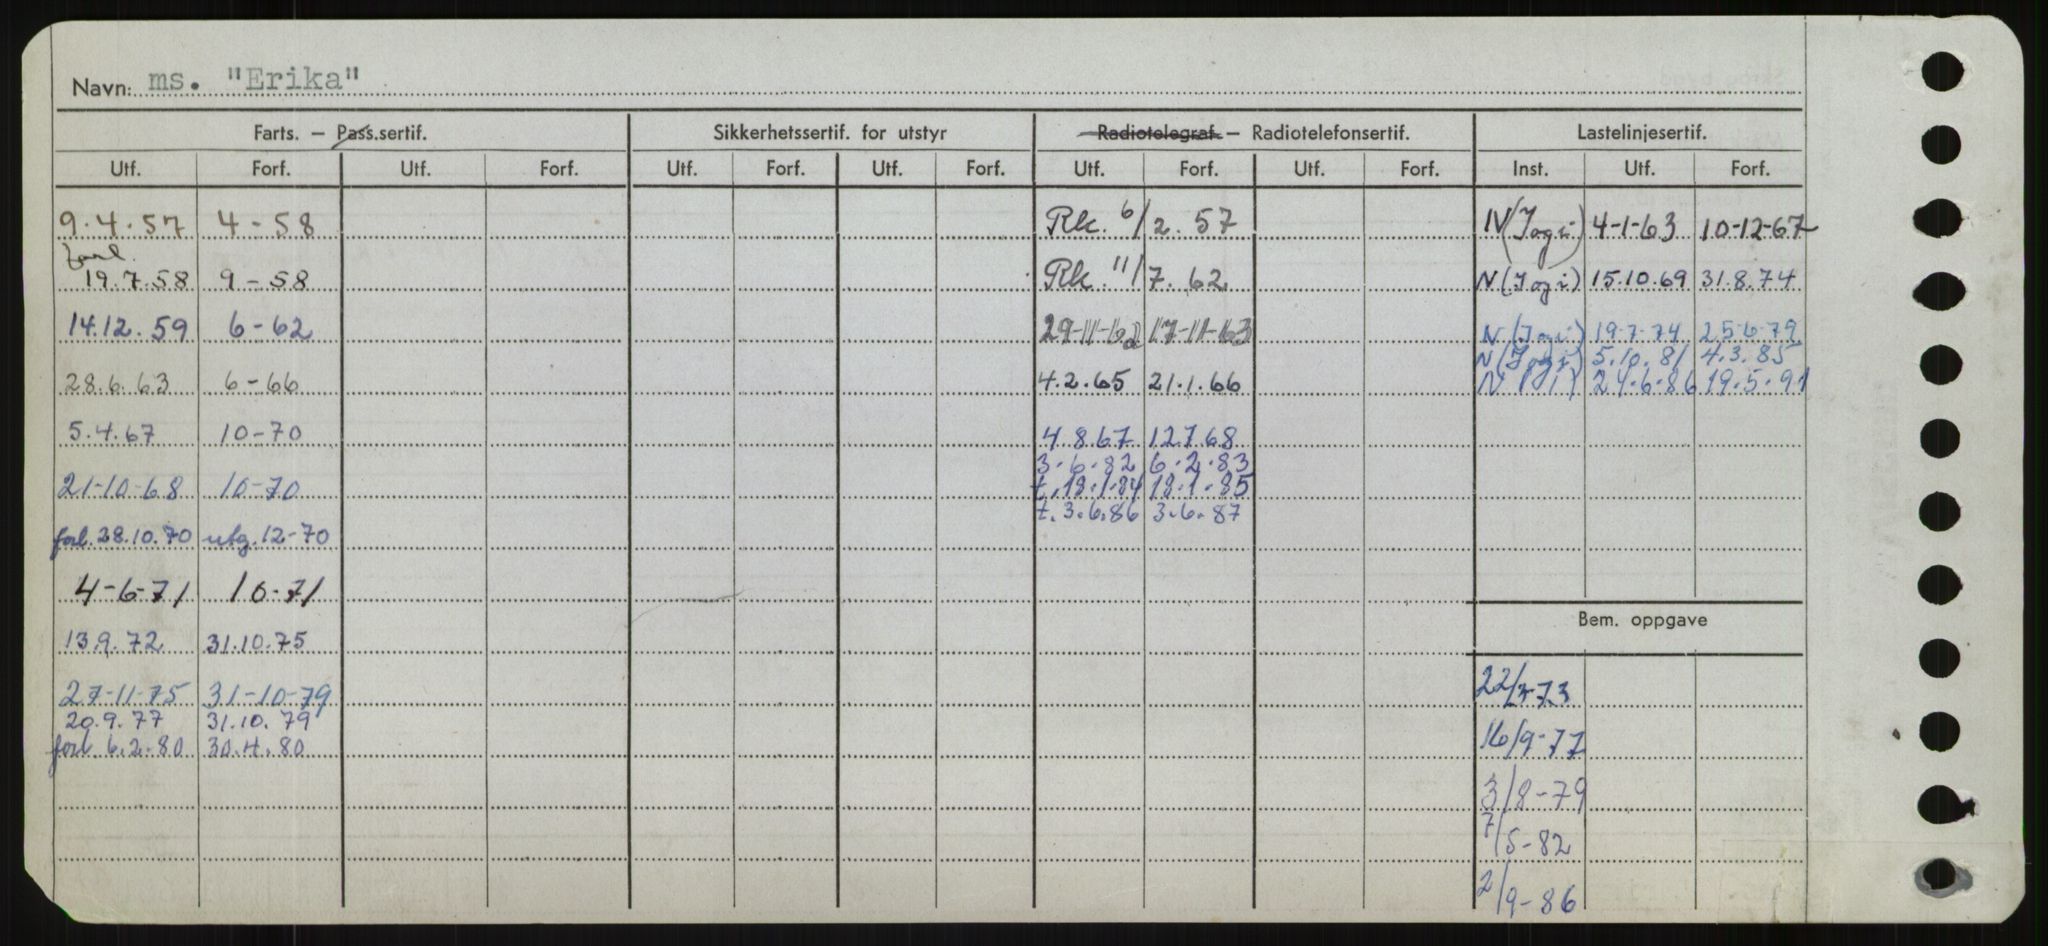 Navn: ms. "Erika"
Farts. — Pass.sertif. Sikkerhetssertif. for utstyr Radiotelegraf. — Radiotelefonsertif. Lastelinjesertif.
Utf. Forf. Utf. Forf. Utf. Forf. Utf. Forf. Utf. Forf. Utf. Forf. Inst. Utf. Forf.
9.4.57 4-58 Rk. 6/2. 57 N(Jogi) 4-1-63 10-12-67
forl.
19.7.58 9-58 Rk. 11/7. 62 N(Jogi) 15.10.69 31.8.74
14.12.59 6-62 29-11-62 17-11-63 N(Jogi) 19-7-74 25-6-79
N(Jogi) 5.10.81 4.3.85
28.6.63 6-66 4.2.65 21.1.66 N ( 11 ) 24-6-86 19.5.91
5.4.67 10-70 4.8.67 12.7.68
3.6.82 6.2.83
21-10-68 10-70 t.18.1.84 18.1.85
t.3.6.86 3.6.87
forl.28.10.70 utg.12-70
4-6-71 10-71
Bem. oppgave
13.9.72 31.10.75
27-11-75 31-10-79 22/3-73
20.9.77 31.10.79
forl. 6.2.80 30.4.80 16/9-77
3/8-79
7/5-82
2/9-86